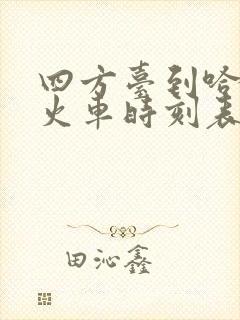 四方臺到哈
火車時刻表
田沁鑫